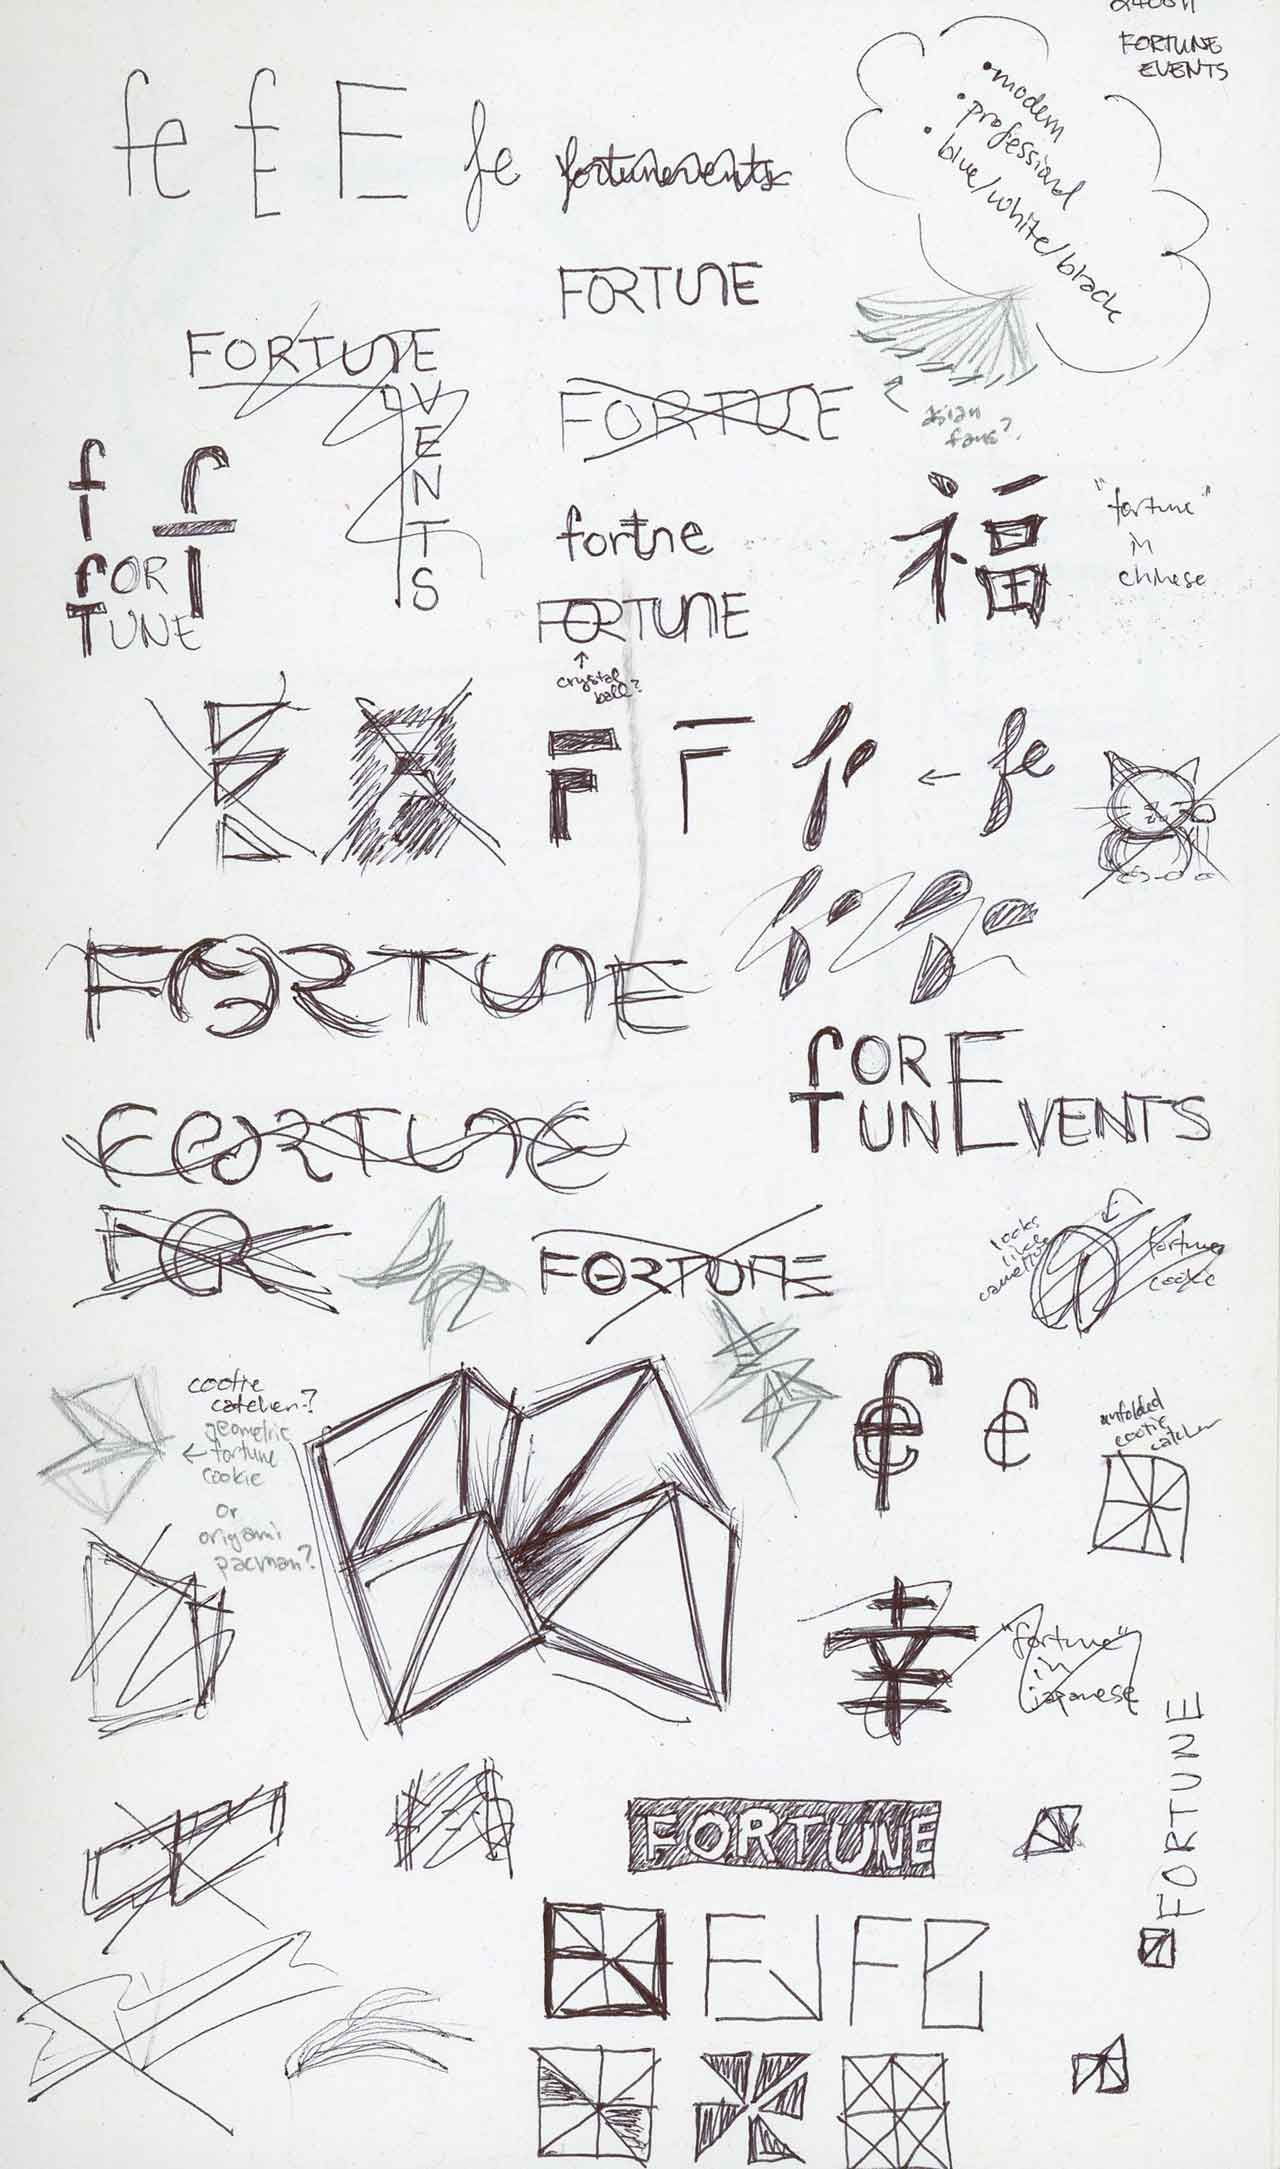 FORTUNE
EVENTS
• modern
• professional
• blue/white/black
fe
fE
FE
fe
fortunevents
FORTUNE
FORTUNE
EVENTS
FORTUNE
asian
fans?
f
f
FOR
TUNE
fortune
福
"fortune"
in
chinese
FORTUNE
crystal
ball?
F
F
←
fe
FORTUNE
FOR
TUNEVENTS
FORTUNE
FOR
FORTUNE
looks
like
fortune
cookie
cootie
catcher?
geometric
← fortune
cookie
or
origami
pacman?
fe
fe
unfolded
cootie
catcher
幸
"fortune"
in
japanese
FORTUNE
FORTUNE